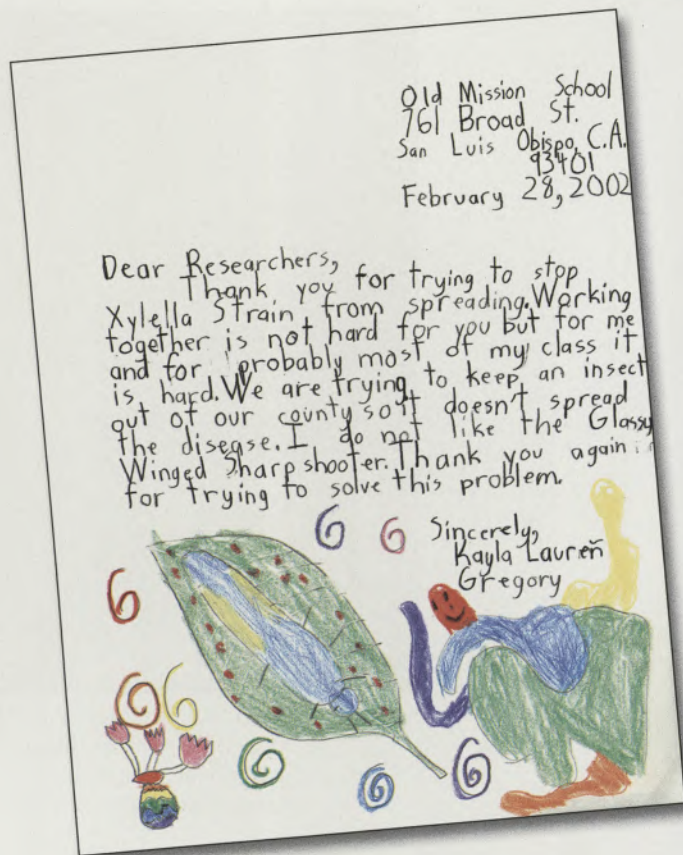 Old Mission School
761 Broad St.
San Luis Obispo, C.A.
93401
February 28, 2002
Dear Researchers,
Thank you for trying to stop
Xylella Strain from spreading. Working
together is not hard for you but for me
and for probably most of my class it
is hard. We are trying to keep an insect
out of our county so it doesn't spread
the disease. I do not like the Glassy
Winged Sharpshooter. Thank you again
for trying to solve this problem.
Sincerely,
Kayla Lauren
Gregory